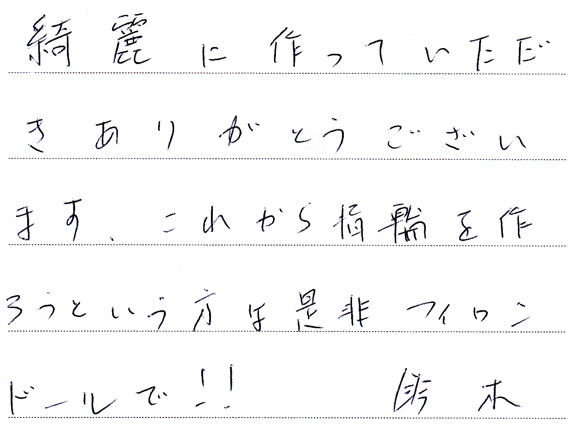 綺麗に作っていただ
きありがとうござい
ます、これから指輪を作
ろうという方は是非フィロン
ドールで!! 鈴木